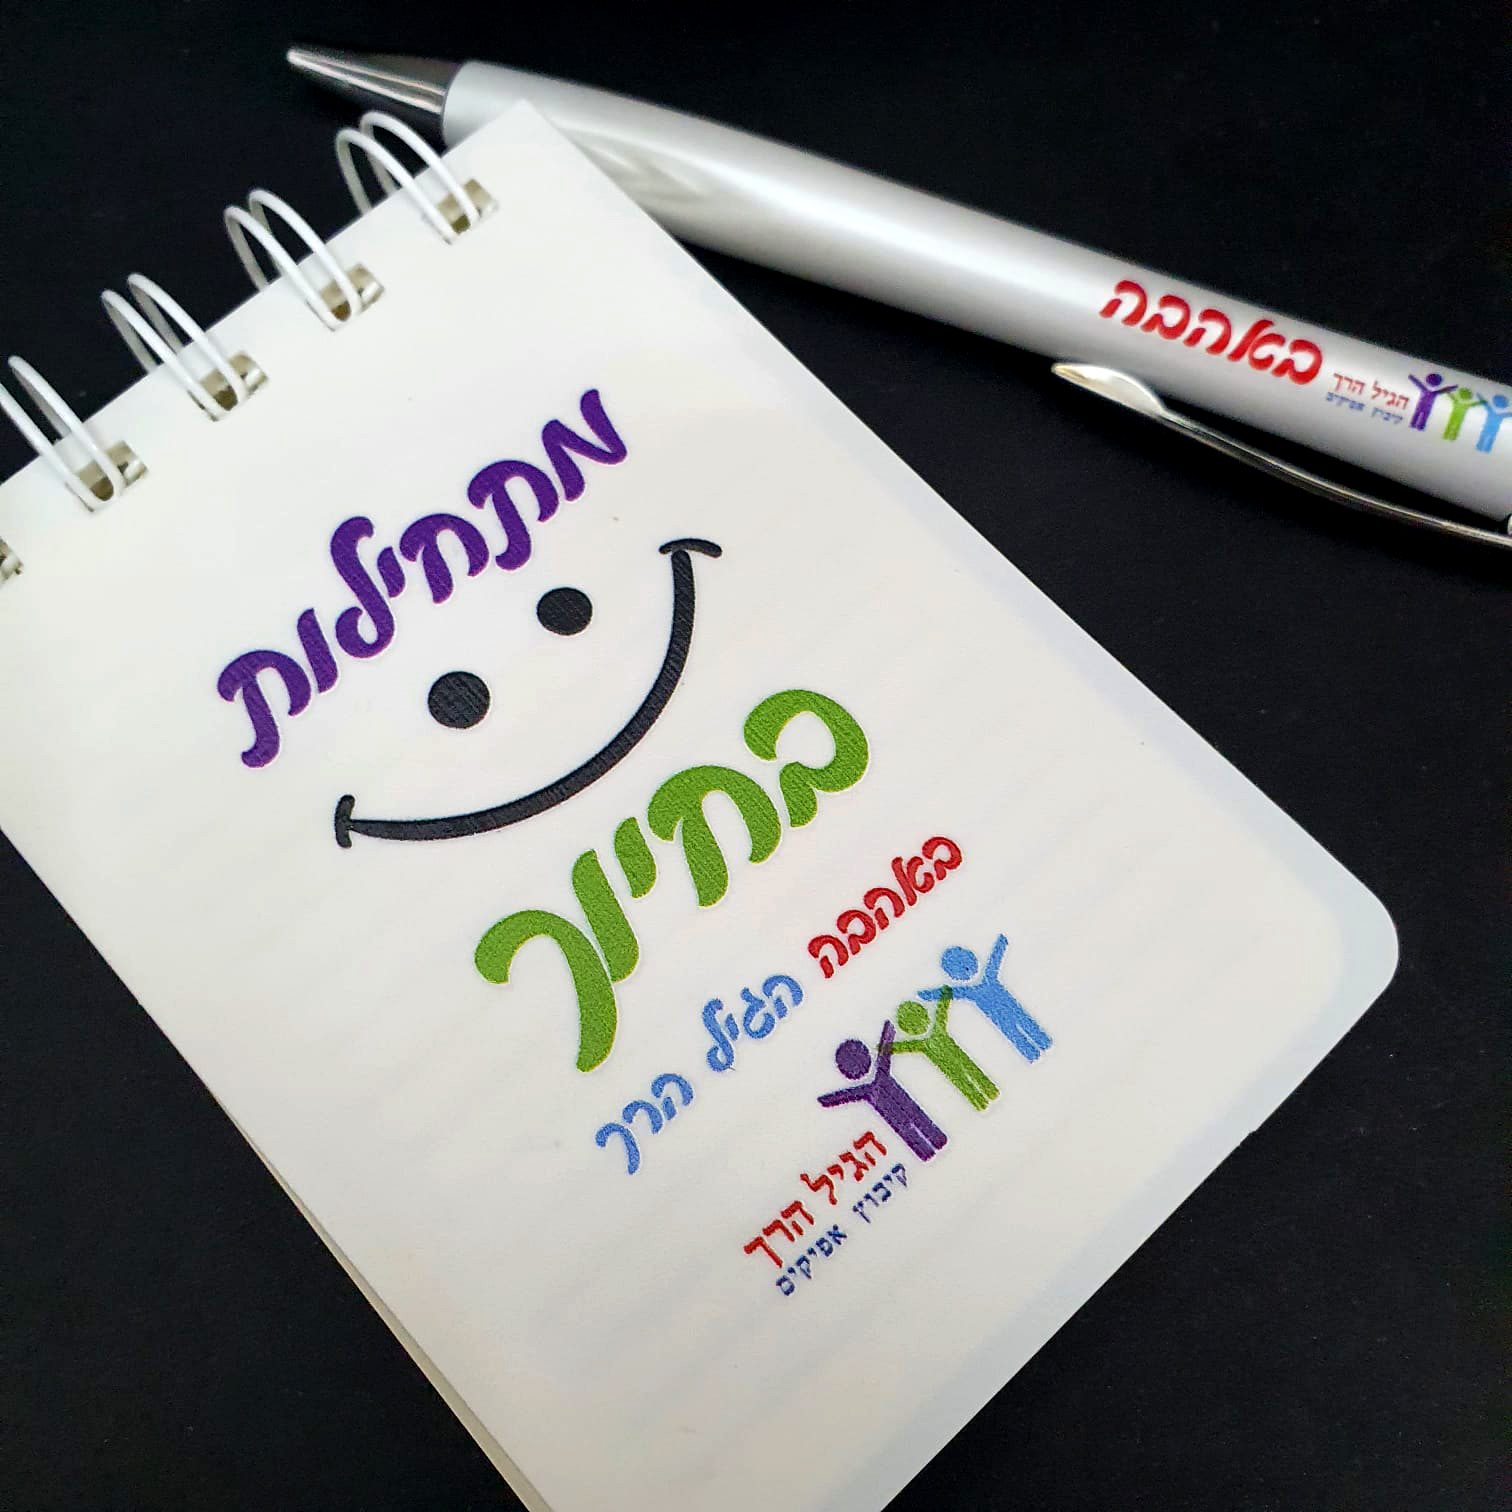 מתחילות
בחיוך
באהבה הגיל הרך
הגיל הרך
קיבוץ אפיקים
באהבה
הגיל הרך
קיבוץ אפיקים